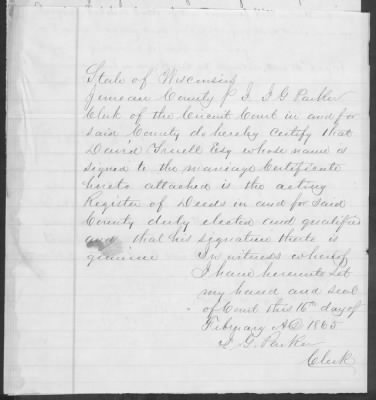 State of Wisconsin
Juneau County } I, I G Parker
Clerk of the Circuit Court in and for
said County do hereby Certify that
David Truell Esq whose name is
signed to the marriage Certificate
hereto attached is the acting
Register of Deeds in and for said
County duly elected and qualified
and that his signature thereto is
genuine In witness whereof
I have hereunto set
my hand and seal
of Court this 16th day of
February AD 1865
I. G. Parker
Clerk